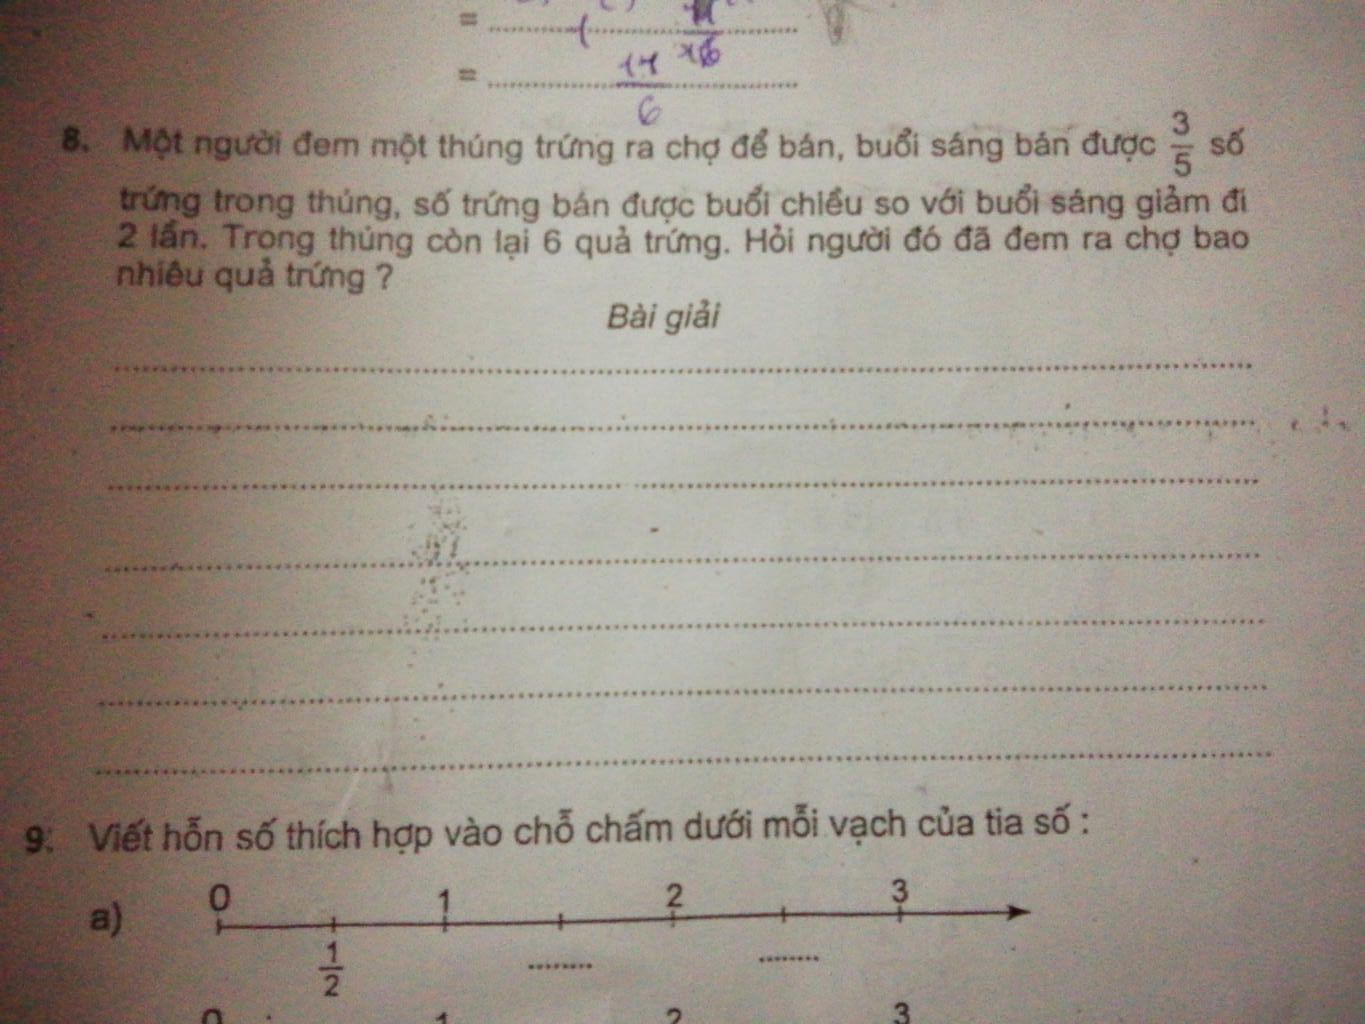 =
= 17/6
8. Một người đem một thúng trứng ra chợ để bán, buổi sáng bán được 3/5 số
trứng trong thúng, số trứng bán được buổi chiều so với buổi sáng giảm đi
2 lần. Trong thúng còn lại 6 quả trứng. Hỏi người đó đã đem ra chợ bao
nhiêu quả trứng ?
Bài giải
9. Viết hỗn số thích hợp vào chỗ chấm dưới mỗi vạch của tia số :
a) 0 1 2 3
1/2 ......... .........
0 1 2 3